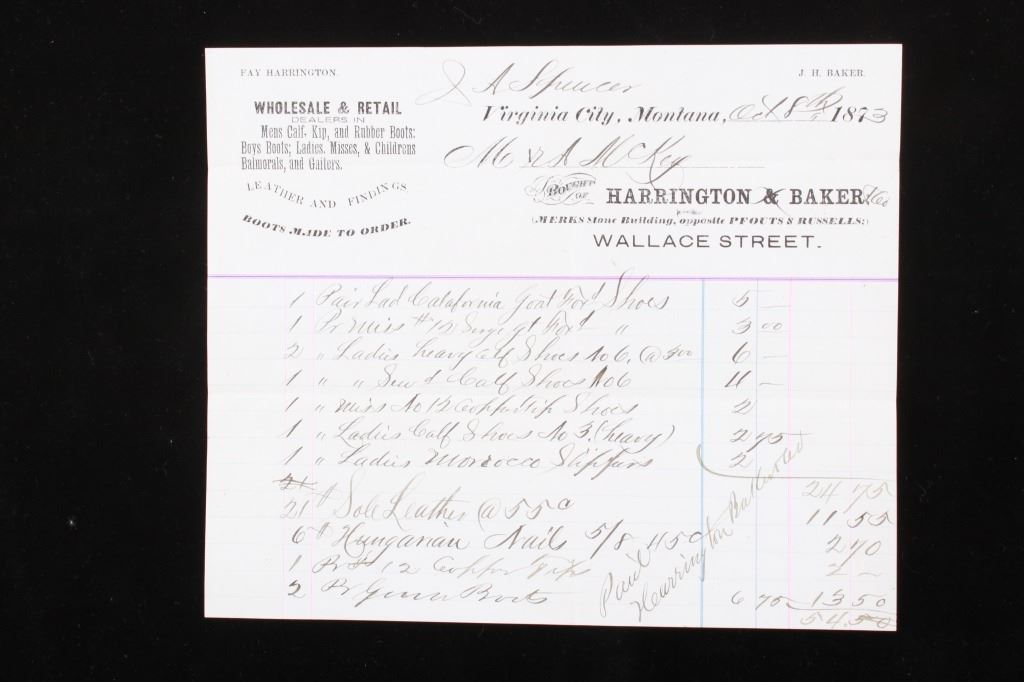 FAY HARRINGTON.
J. H. BAKER.
J A Spencer
WHOLESALE & RETAIL
DEALERS IN
Mens Calf, Kip, and Rubber Boots:
Boys Boots; Ladies, Misses, & Childrens
Balmorals, and Gaiters.
LEATHER AND FINDINGS
BOOTS MADE TO ORDER.
Virginia City, Montana, Oct 8th 1873
M
BOUGHT OF
HARRINGTON & BAKER
(MERKS Stone Building, opposite PFOUTS & RUSSELLS;)
WALLACE STREET.
1 Pair Lad California Goat Foxd Shoes 5 —
1 Pr Miss #12 Serge gt Foxd " 3 00
2 " Ladies heavy calf Shoes No 6. @ 300 6 —
1 " " Sewd Calf Shoes No 6 —
1 " Miss No 12 Coppertip Shoes 2
1 " Ladies Calf Shoes No 3. (heavy) 2 75
1 " Ladies Morrocco Slippers 2
24 75
21 # Sole Leather @ 55c 11 55
6 # Hungarian Nails 5/8 45c 2 70
1 Pr # 12 Copper 2 —
2 Pr Boots 6 75 13 50
54.50
Paid
Harrington Baker & Co